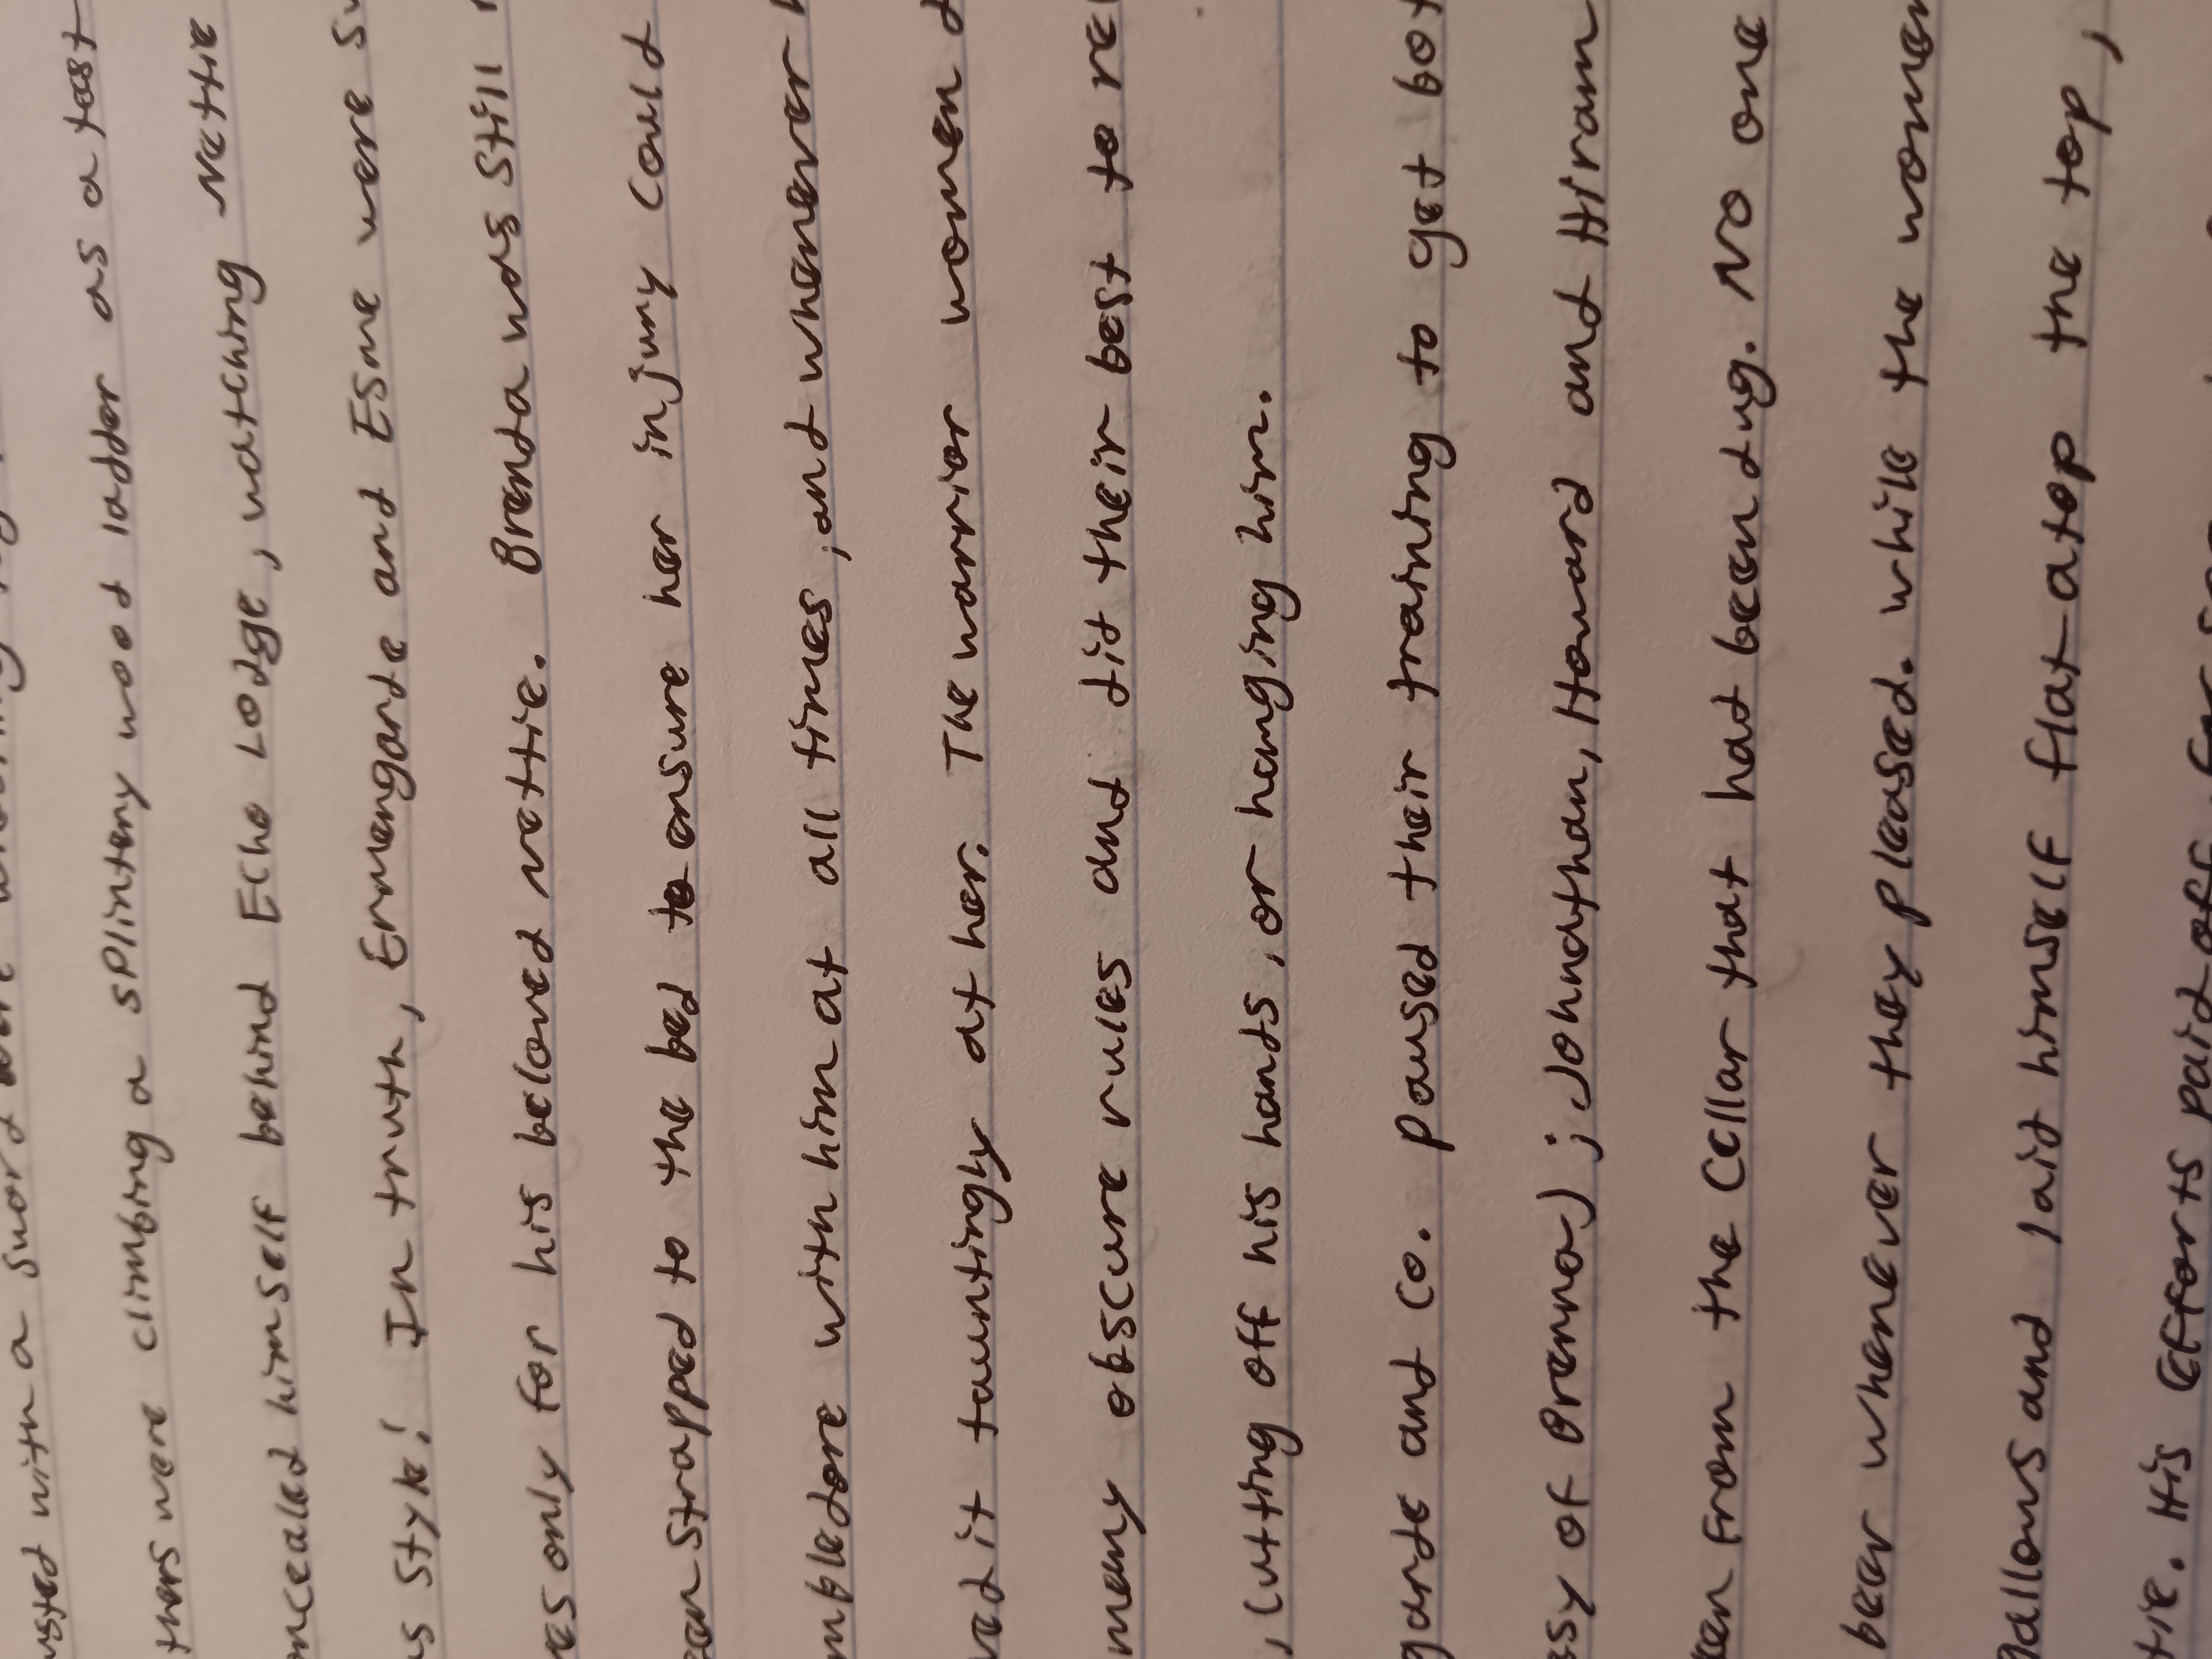 usted with a sword
thers were climbing a splintery wood ladder as a test
ncealed himself behind Echo Lodge, watching Nettie
s style! In truth, Ermengarde and Esme were
es only for his beloved Nettie. Brenda was still
een strapped to the bed to ensure her injury could
mbledore with him at all times, and whenever
ved it tauntingly at her. The warrior women
many obscure rules and did their best to re
, cutting off his hands, or hanging him.
garde and Co. paused their training to get bot
sy of Brenna); Johnathan, Howard and Hiram
ken from the cellar that had been dug. No one
beer whenever they pleased. While the women
gallows and laid himself flat atop the top,
tie. His efforts paid off